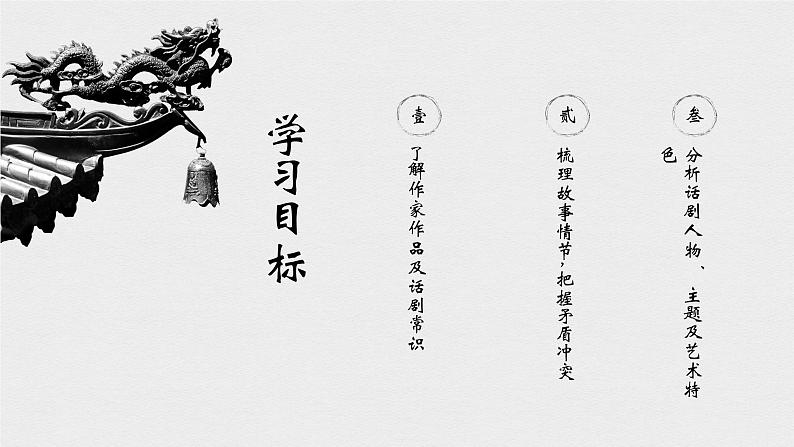 学习目标
壹
了解作家作品及话剧常识
贰
梳理故事情节，把握矛盾冲突
叁
分析话剧人物、主题及艺术特
色